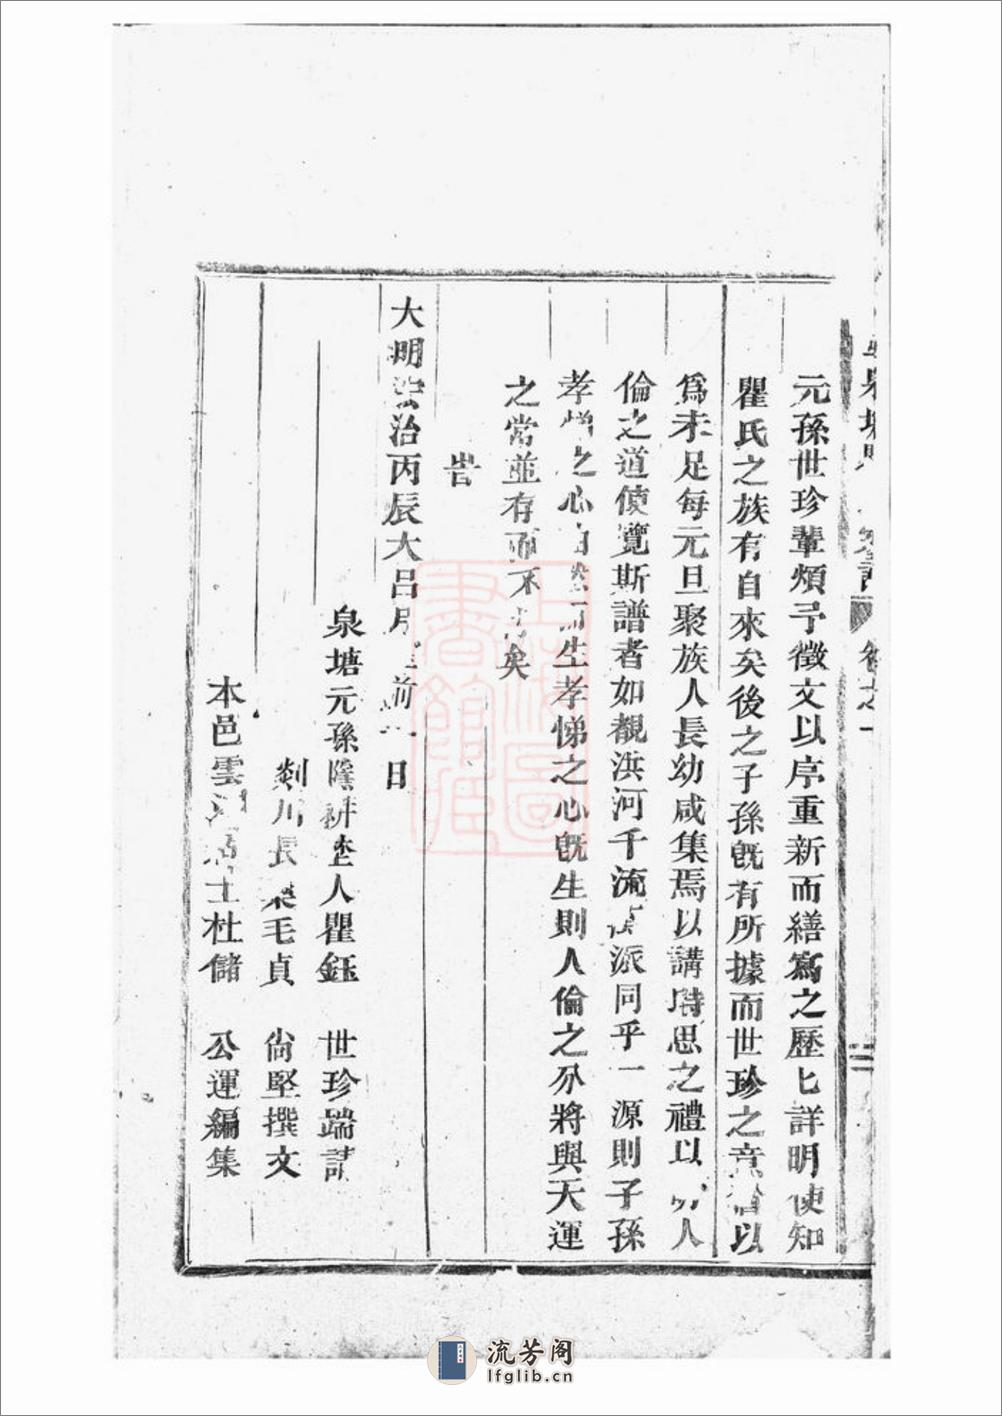 元孫世珍輩煩予徵文以序重新而繕寫之歷匕詳明使知
瞿氏之族有自來矣後之子孫旣有所據而世珍之意猶以
爲未足每元旦聚族人長幼咸集焉以講時思之禮以明人
倫之道使覽斯譜者如覩洪河千流萬派同乎一源則子孫
孝悌之心油然而生孝悌之心旣生則人倫之分將與天運
之常並存而不矣
旹
大明弘治丙辰大呂月前一日
泉塘元孫隱耕埜人瞿鈺 世珍端請
剡川長毛貞 尙堅撰文
本邑雲士杜儲 公運編集
上海圖書館藏
流芳阁
lfglib.cn